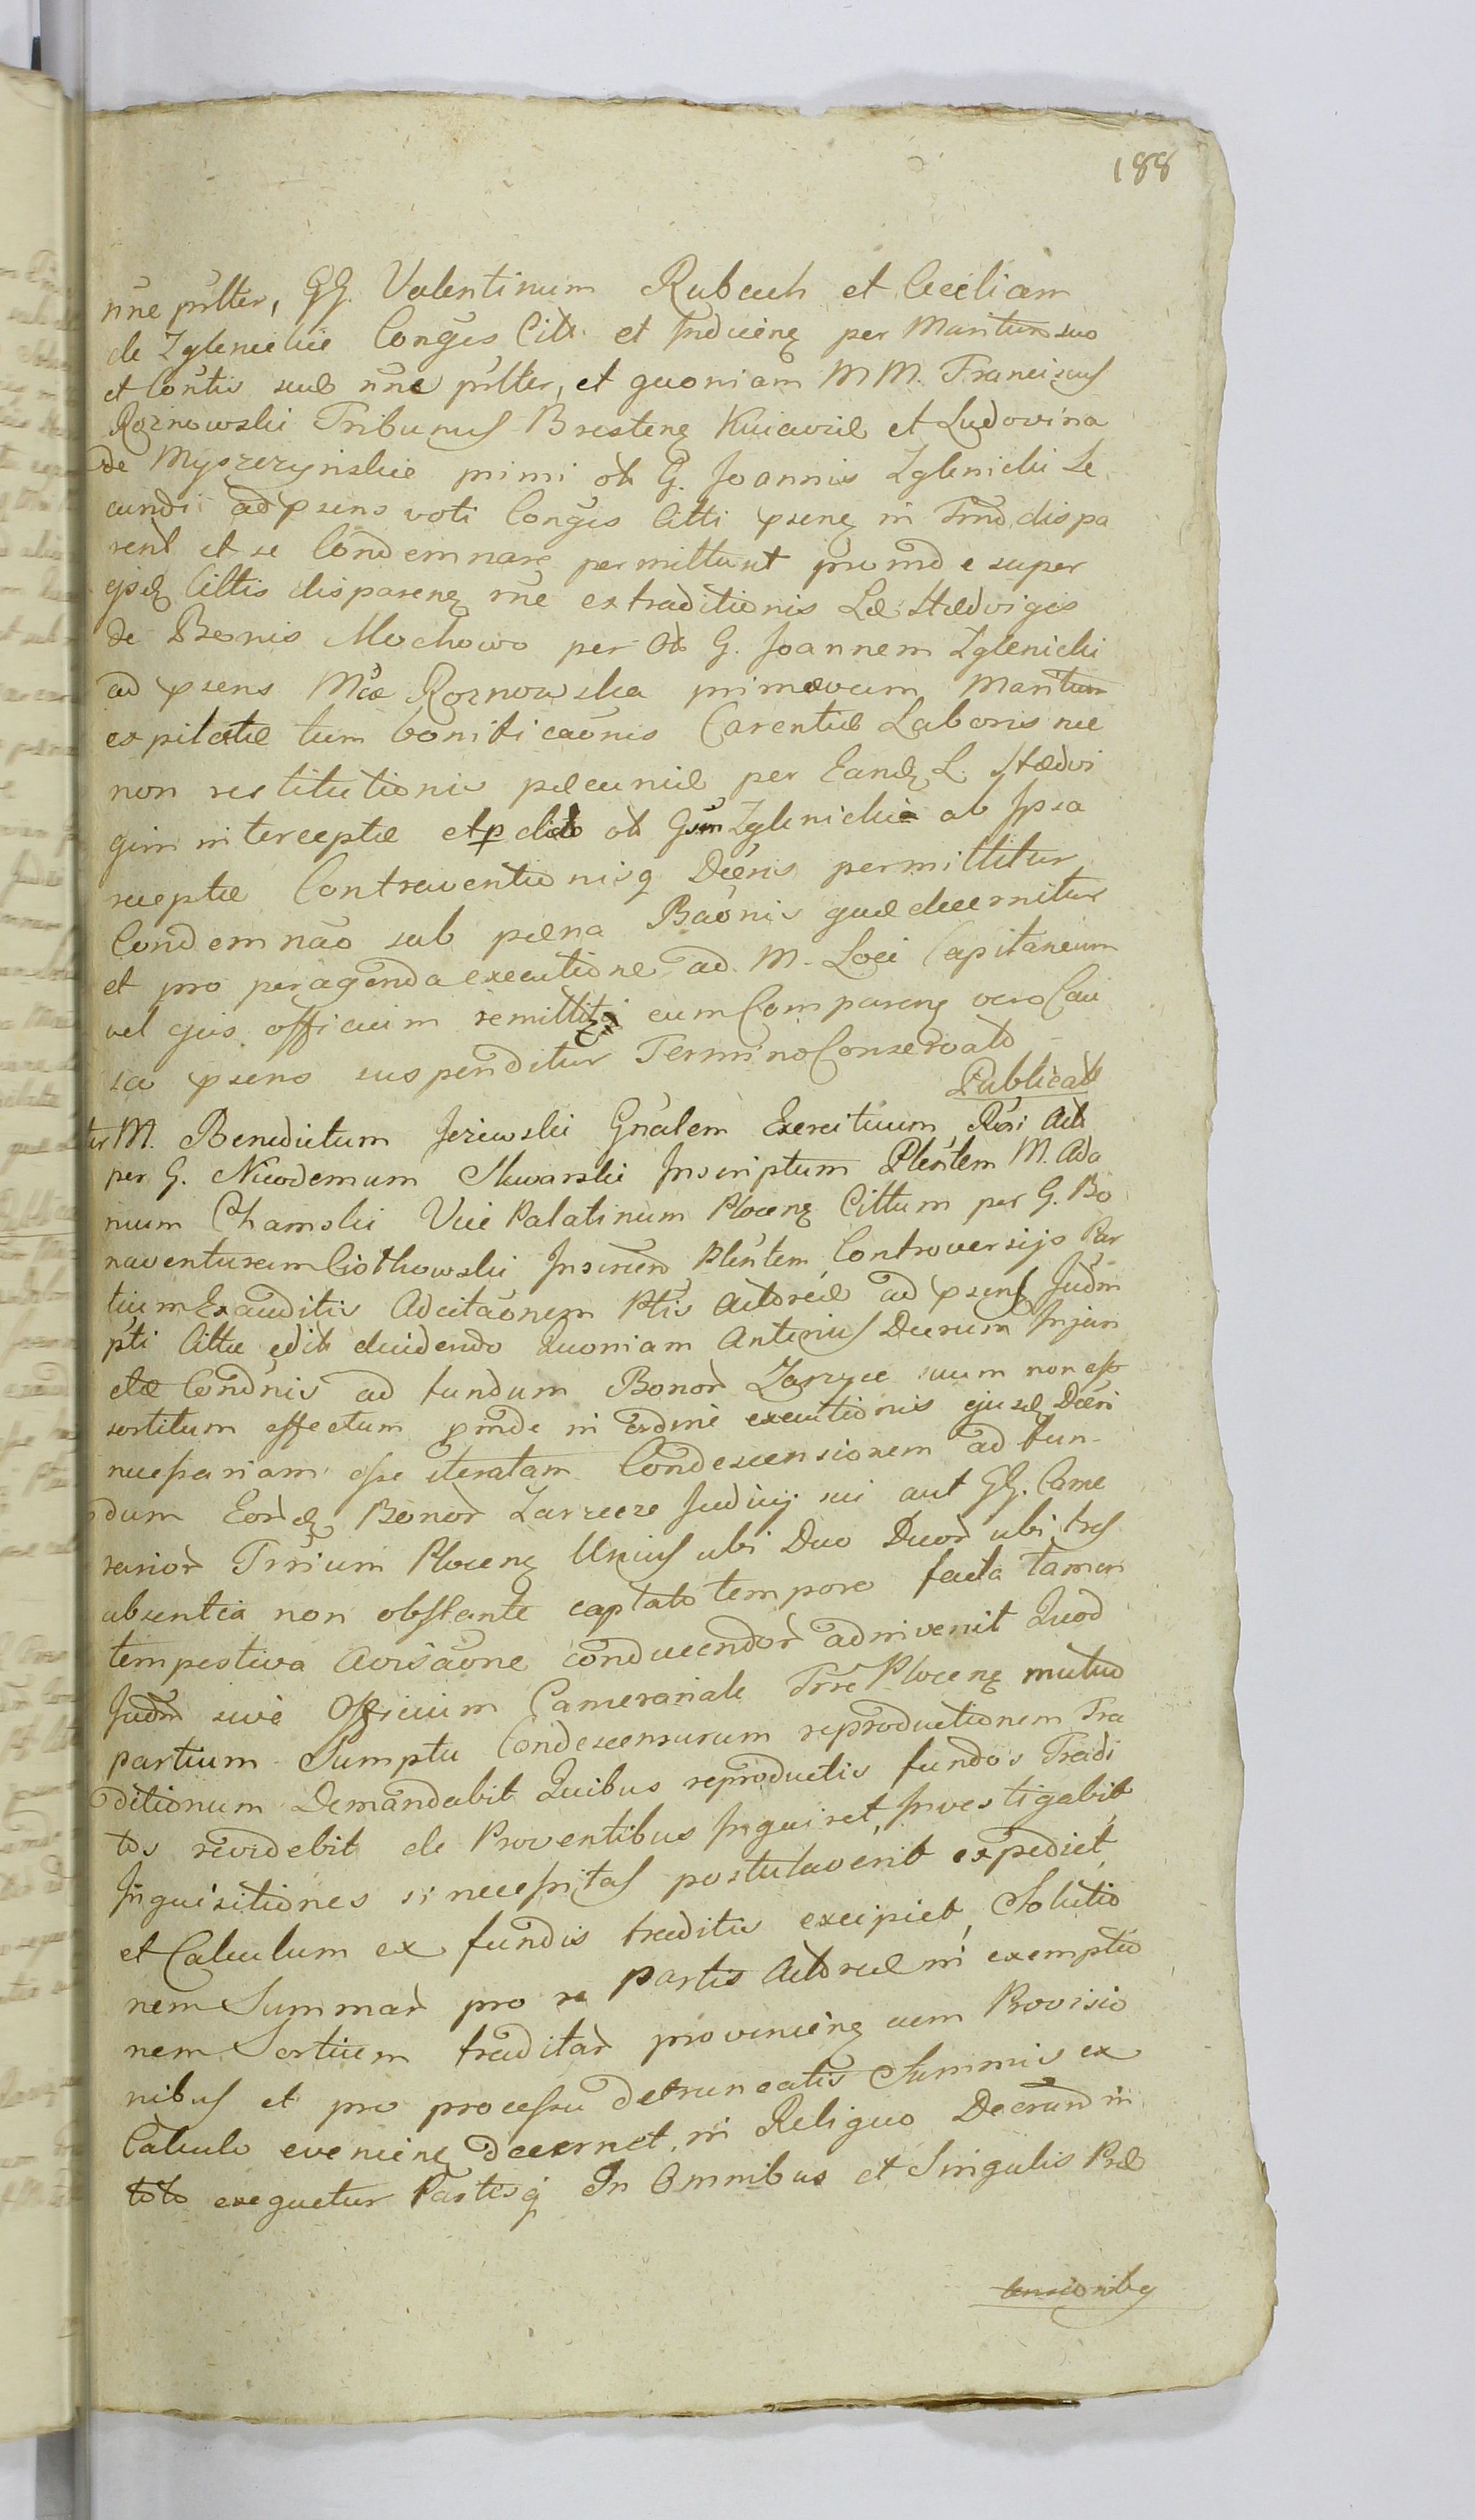 188
nne pntter, GG. Valentinum Rubach et Ceciliam
de Zglenickie Conges Citt. et Inducenꝫ per Maritum suo
et Contis sub nne pntter, et quoniam MM. Franciscus
Roznowski Tribunus Brestenꝫ Kuiaviæ et Ludovina
de Myszczyńskie primi ot G. Joannis Zglenicki Se
cundi ad psens voti Conges Citti psenꝫ in Tmo dispa
rent et se Condemnare permittunt proinde super
ijsdꝫ Cittis disparenꝫ rne extraditionis Læ Hædvigis
de Bonis Mochowo per ot G. Joannem Zglenicki
ad psens Mcæ Roznowska primævum Maritum
expilatæ tum bonificaonis Carentiæ Laboris nec
non restitutionis pæcuniæ per Eandꝫ L. Hædvi
gim interceptæ et p dicto ot Gsum Zglenickie ab Ipsa
receptæ Contraventionisq Decris permittitur
Condemnao sub pæna Baonis quæ decernitur
et pro peragenda executione ad M. Loci Capitaneum
vel ejus officium remittit cum Comparenꝫ vero Cau
sa psens suspenditur Termino Conservato
Publicat
ter M. Benedictum Jeziewski Gnalem Exercituum Act
per G. Nicodemum Skwarski Inscriptum Plentem M. Ada
mum Chamski Vice Palatinum Plocenꝫ Cittum per G. Bo
naventuram Ciotkowski Plentem Controversijs Par
tium Exauditis Ad citaonem Ptis Actoreæ ad psens Judm
pti Citti edit decidendo Quoniam Anterius Decrum Injun
ctæ Condnis ad fundum Bonor suum non est
sortitum effectum pinde in ordine executionis ejusdꝫ Decri
necessariam esse iteratam Condescensionem ad fun
dum Eordꝫ Bonor Judicij sui aut GG. Came
rarior Trrium Plocenꝫ Unius ubi Duo Duor ubi tres
absentia non obstante captato tempore facta tamen
tempestiva Avisaone condicendor adinvenit Quod
Judm sive Officium Camerariale Trre Plocenꝫ mutuo
partium Sumptu Condescensurum reproductionem Tra
ditionum Demandabit Quibus reproductis fundos Tradi
tos revidebit de Proventibus Inquiret, Investigabit
Inquisitiones si necessitas postulaverit expediet
et Calculum ex fundis traditis excipiet, Solutio
nem Summar pro re partis Actoreæ in exemptio
nem Sortium traditar provenienꝫ cum Provisio
nibus et pro processu detruncatis Summis ex
Calculo evenienꝫ decernet, in Reliquo Decrum in
toto exequetur Partesq In Omnibus et Singulis Præ
tensionibq